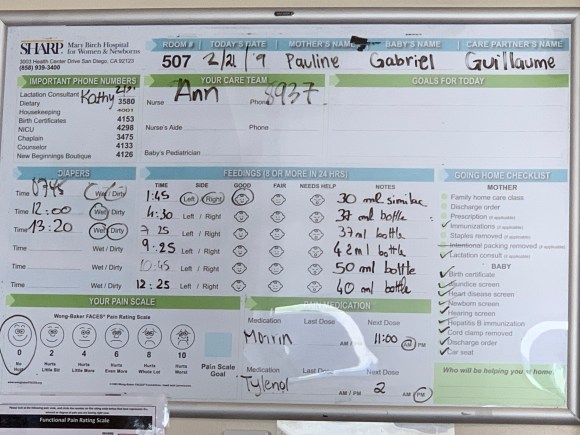 SHARP Mary Birch Hospital for Women & Newborns
3003 Health Center Drive San Diego, CA 92123
(858) 939-3400
ROOM # TODAY'S DATE MOTHER'S NAME BABY'S NAME CARE PARTNER'S NAME
507 2/21/19 Pauline Gabriel Guillaume
IMPORTANT PHONE NUMBERS
Lactation Consultant Kathy
Dietary 3580
Housekeeping 4001
Birth Certificates 4153
NICU 4298
Chaplain 3475
Counselor 4133
New Beginnings Boutique 4126
YOUR CARE TEAM
Nurse Ann Phone 8937
Nurse's Aide Phone
Baby's Pediatrician
GOALS FOR TODAY
DIAPERS
Time 0745 Wet / Dirty
Time 12:00 Wet / Dirty
Time 13:20 Wet / Dirty
Time Wet / Dirty
Time Wet / Dirty
Time Wet / Dirty
FEEDINGS (8 OR MORE IN 24 HRS)
TIME SIDE GOOD FAIR NEEDS HELP NOTES
1:45 Left / Right 30 ml similac
4:30 Left / Right 37 ml bottle
7 25 Left / Right 37 ml bottle
9:25 Left / Right 42 ml bottle
10:45 Left / Right 50 ml bottle
12:25 Left / Right 40 ml bottle
GOING HOME CHECKLIST
MOTHER
Family home care class
Discharge order
Prescription (if applicable)
Immunizations (if applicable)
Staples removed (if applicable)
Intentional packing removed (if applicable)
Lactation consult (if applicable)
BABY
Birth certificate
Jaundice screen
Heart disease screen
Newborn screen
Hearing screen
Hepatitis B immunization
Cord clamp removed
Discharge order
Car seat
Who will be helping you at home
YOUR PAIN SCALE
Wong-Baker FACES® Pain Rating Scale
0 2 4 6 8 10
No Hurt Hurts Little Bit Hurts Little More Hurts Even More Hurts Whole Lot Hurts Worst
Pain Scale Goal
PAIN MEDICATION
Medication Last Dose Next Dose
Motrin AM / 11:00 AM PM
Medication Last Dose Next Dose
Tylenol AM / PM 2 AM PM
Functional Pain Rating Scale